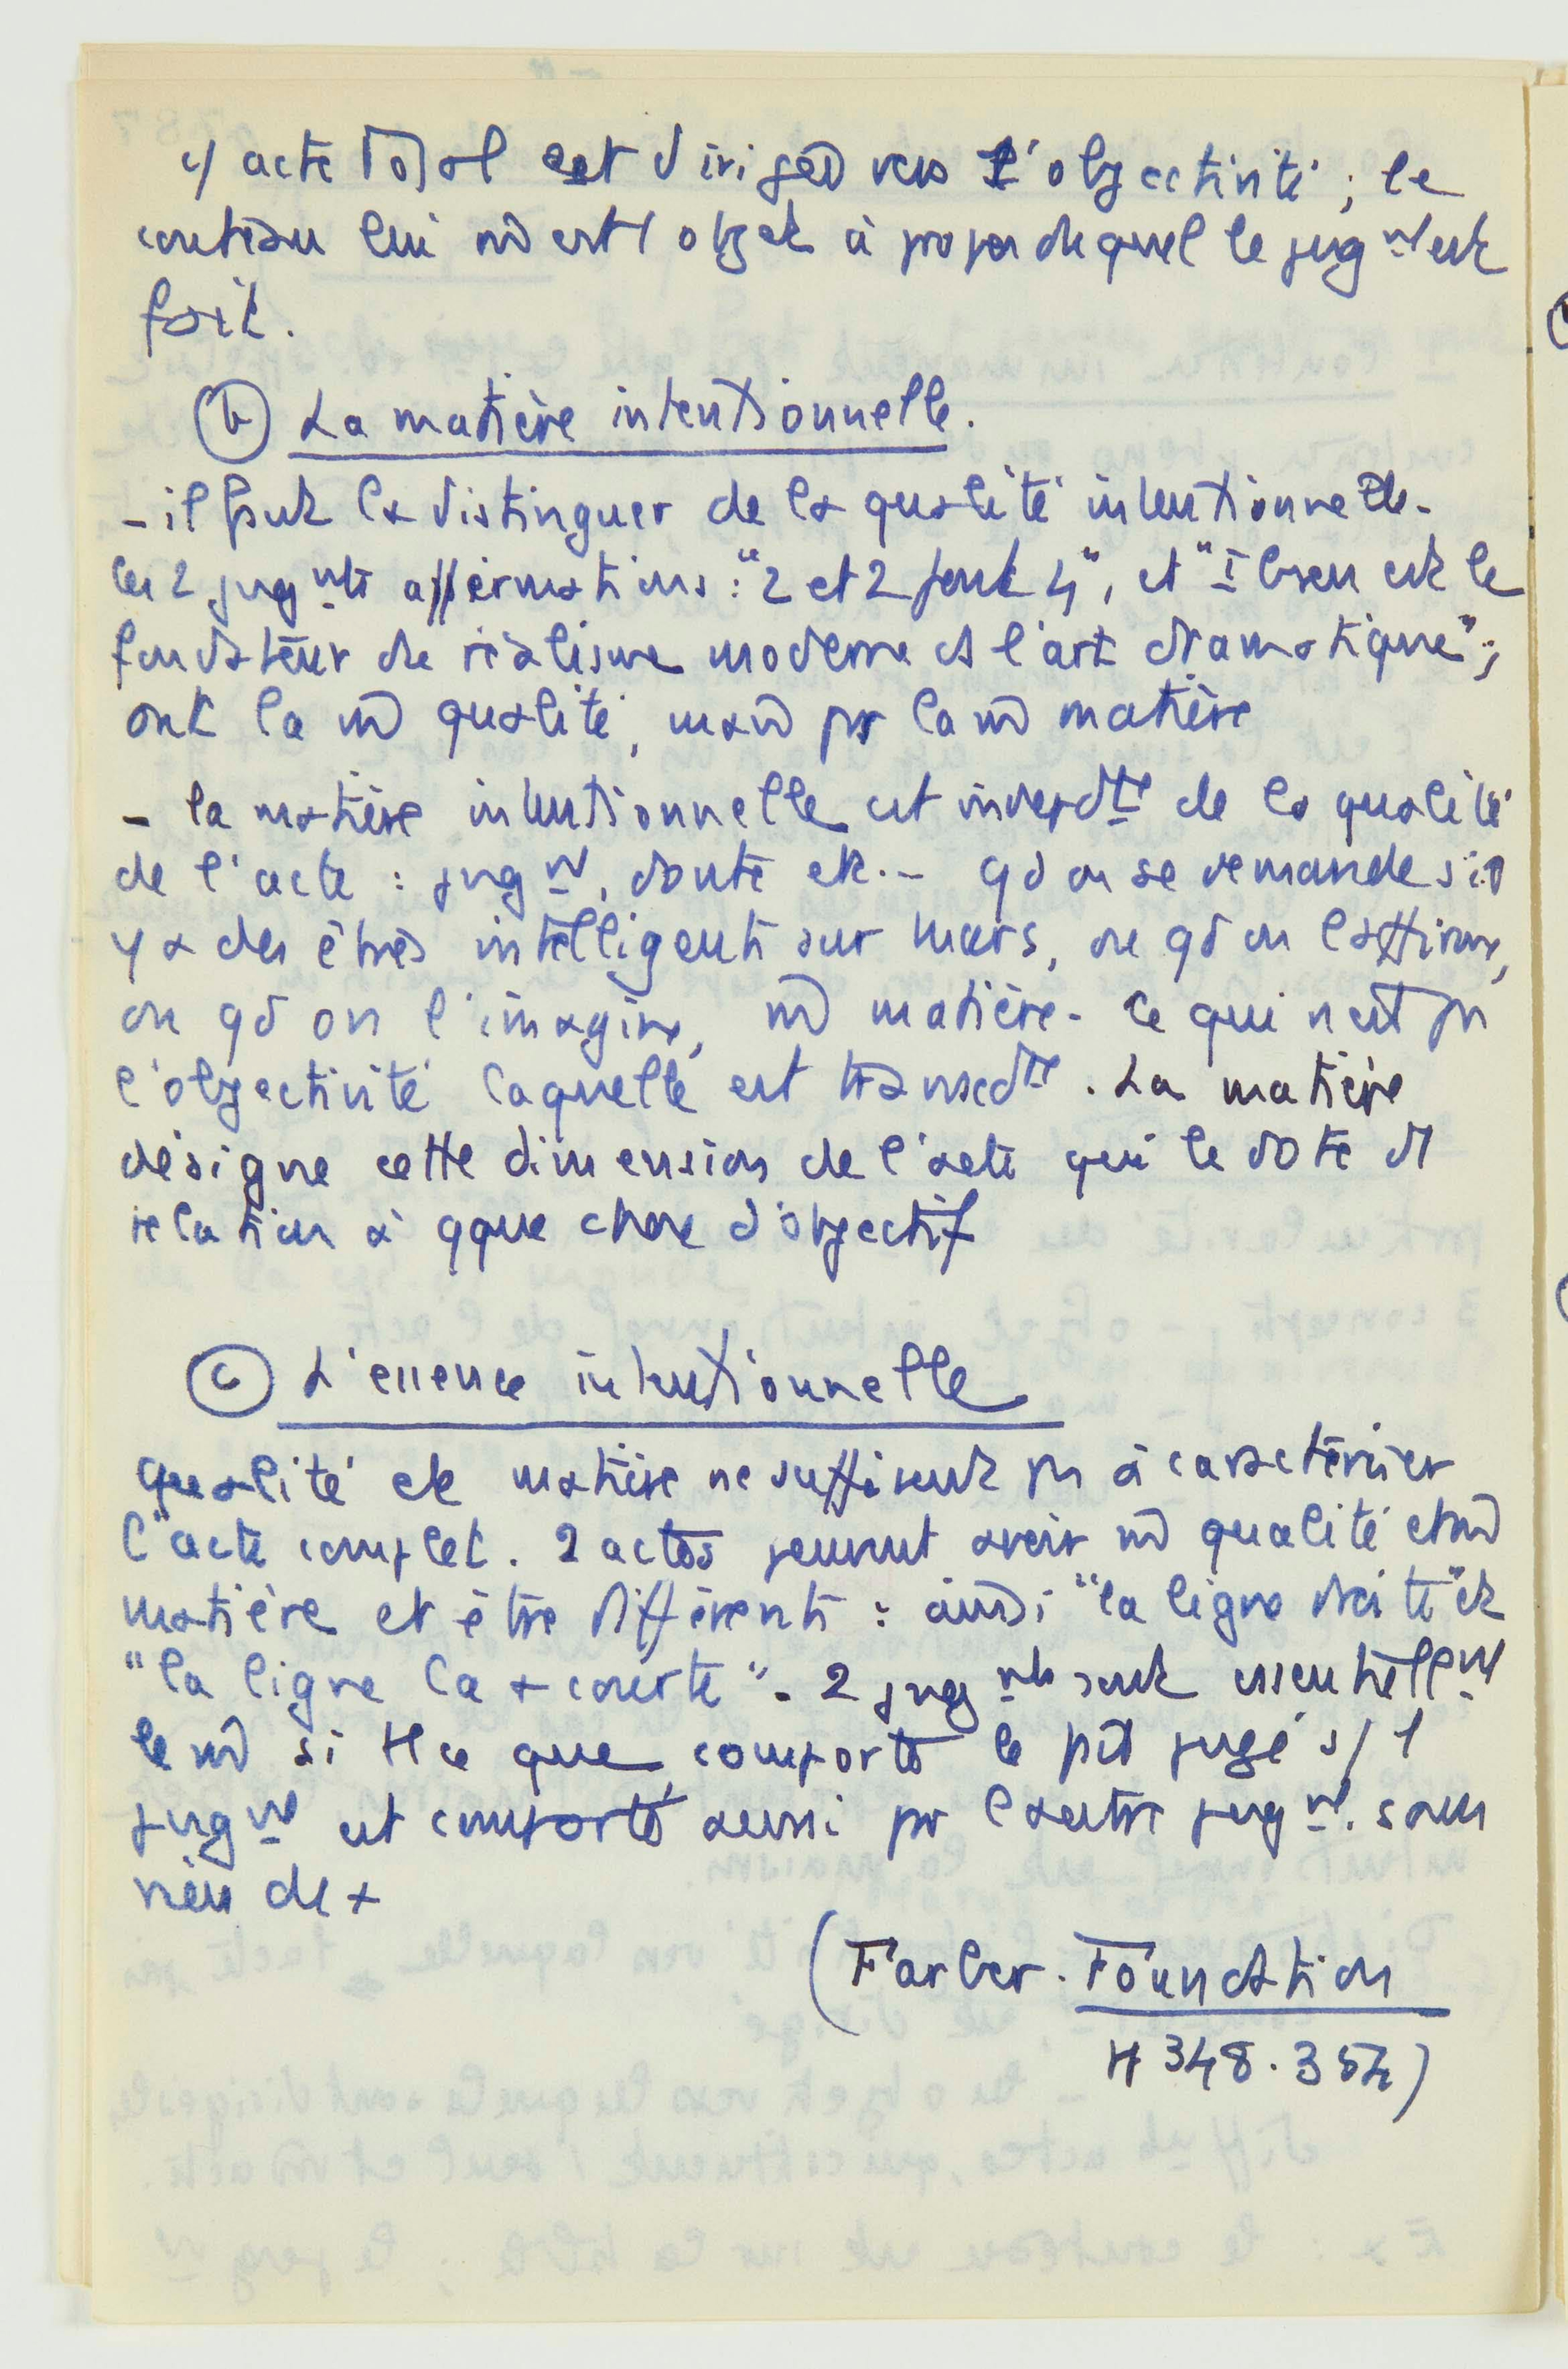 c/ acte total est dirigé vers l'objectivité ; le
couteau lui m̂ est l objet à propos duquel le jug nt est
fait.
(b) La matière intentionnelle.
- il faut la distinguer de la qualité intentionnelle.
les 2 jug nts affirmations : "2 et 2 font 4", et "Ibsen est le
fondateur du réalisme moderne ds l'art dramatique" ;
ont la m̂ qualité, mais pas la m̂ matière
- la matière intentionnelle est indepdte de la qualité
de l'acte : jug nt, doute etc. - qd on se demande s'il
y a des êtres intelligents sur Mars, ou qd on l'affirme,
ou qd on l'imagine, m̂ matière - ce qui n'est pas
l'objectivité laquelle est transcdte. La matière
désigne cette dimension de l'acte qui le dote d
relation à qque chose d'objectif
(c) L'essence intentionnelle
qualité et matière ne suffisent pas à caractériser
l'acte complet. 2 actes peuvent avoir m̂ qualité et m̂
matière et être différents : ainsi "la ligne droite" et
"la ligne la + courte". 2 jug nts sont essentiell nt
le m̂ si tt ce que comporte le jugé s/ l
jug nt est comporté aussi par l'autre jug nt. sans
rien de +
(Farber. Foundation
348.354)